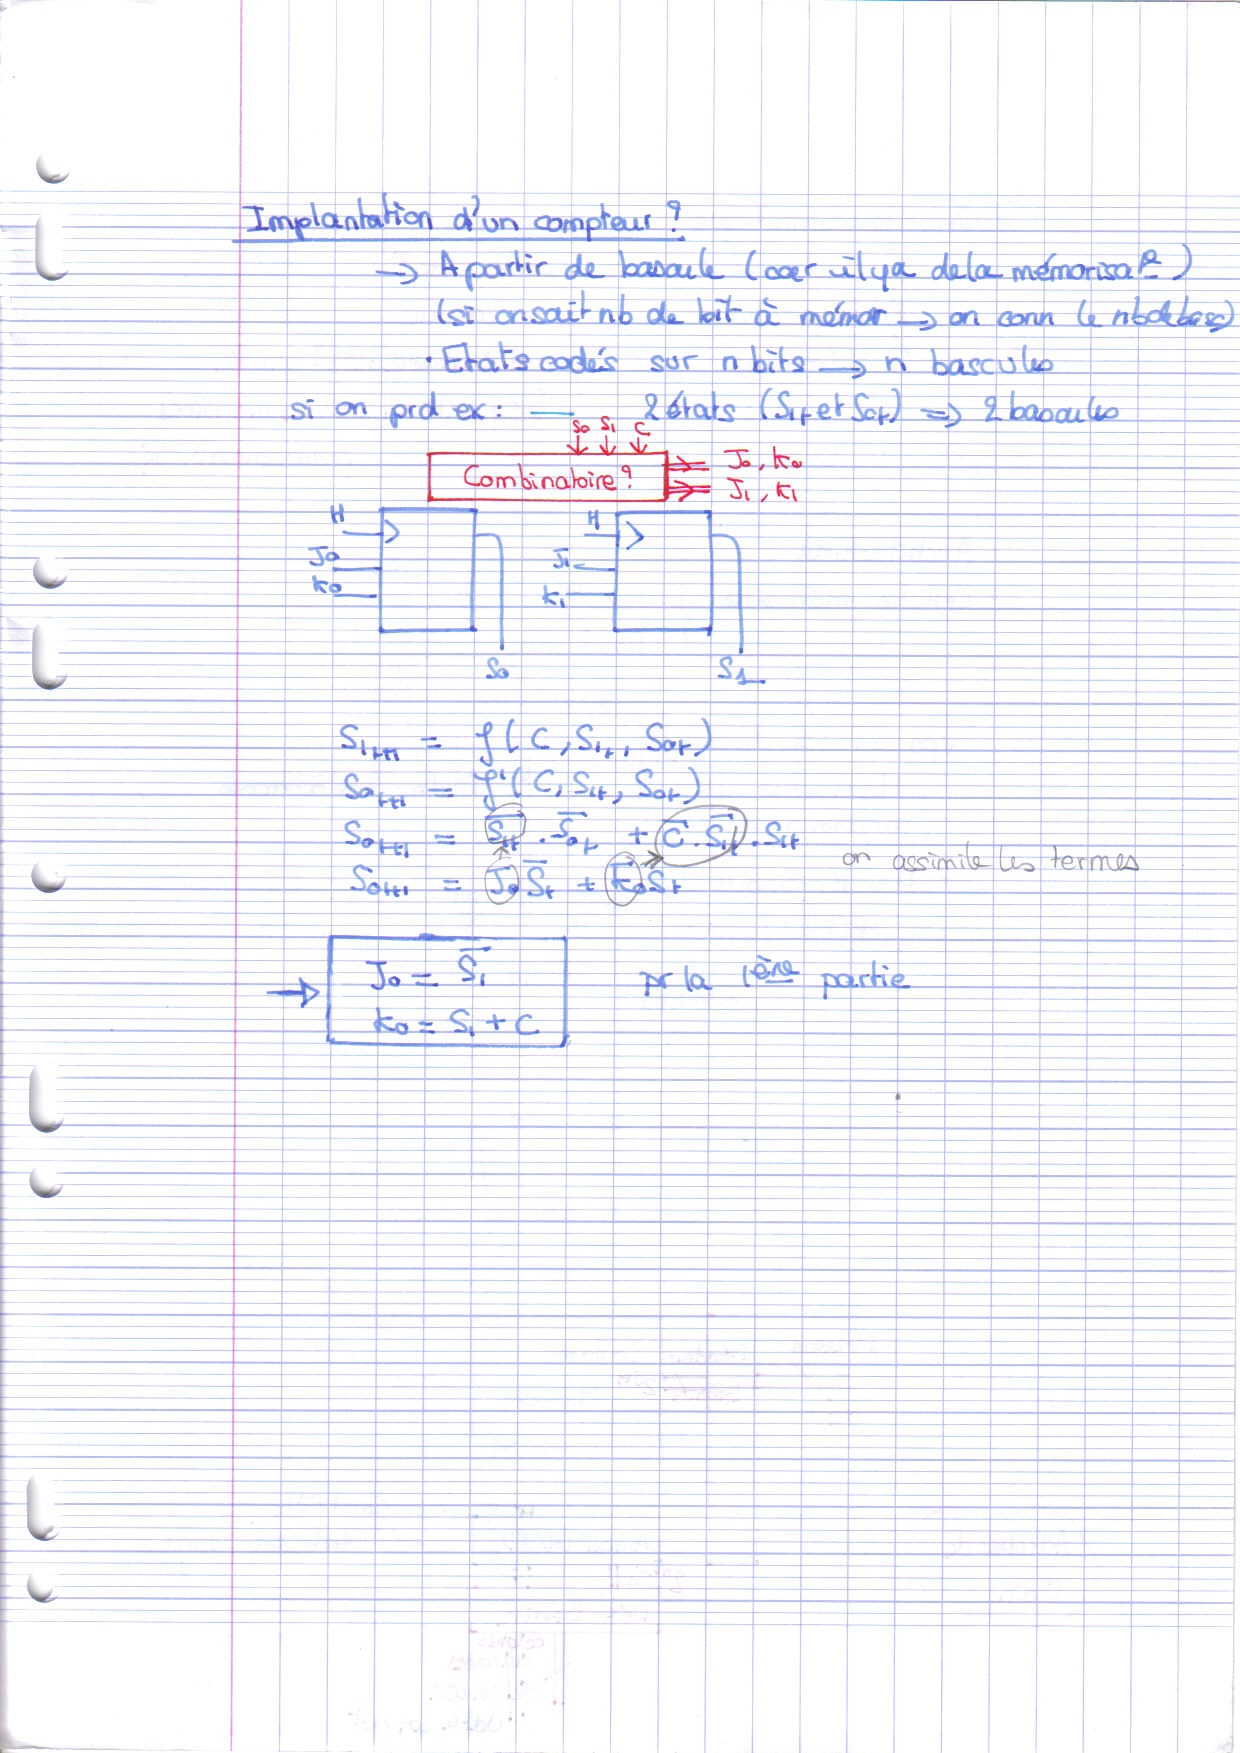 Implantation d'un compteur ?
→ A partir de bascule (car il y a de la mémorisa°)
(si on sait nb de bit à mémor → on conn le nb de basc)
• Etats codés sur n bits → n bascules
si on prd ex : — 2 états (S1t et S0t) => 2 bascules
S0 S1 C
Combinatoire ?
J0, K0
J1, K1
H
J0
K0
S0
H
J1
K1
S1
S1t+1 = f(C, S1t, S0t)
S0t+1 = f'(C, S1t, S0t)
S0t+1 = S̅1t . S̅0t + C̅ . S̅1t . S1t
on assimile les termes
S0t+1 = J0 S̅t + K̅0 St
→ J0 = S̅1
K0 = S1 + C
pr la 1ère partie